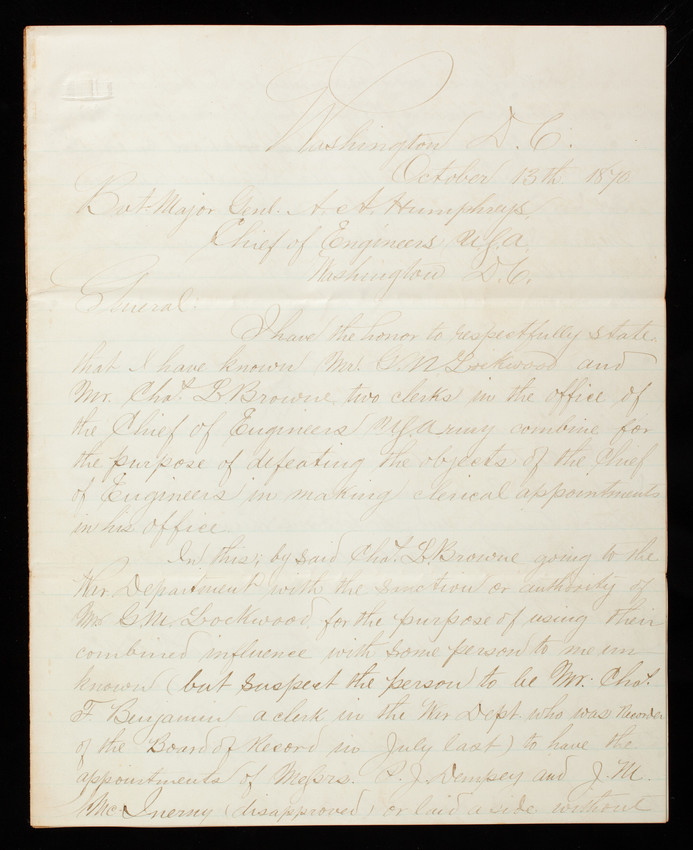 Washington D. C.
October 13th 1870.
Bvt. Major Genl. A. A. Humphreys,
Chief of Engineers U.S.A.
Washington D.C.
General:
I have the honor to respectfully state
that I have known Mr. G. M. Lockwood and
Mr. Chas. L. Browne, two clerks in the office of
the Chief of Engineers U.S. Army combine for
the purpose of defeating the objects of the Chief
of Engineers in making clerical appointments
in his office.
In this; by said Chas. L. Browne going to the
War Department with the sanction or authority of
Mr. G. M. Lockwood, for the purpose of using their
combined influence with some person to me un
known (but suspect the person to be Mr. Chas.
F Benjamin a clerk in the War Dept. who was Recorder
of the Board of Record in July last) to have the
appointments of Messrs. P. J. Dempsey and J. M.
McInerny (disapproved) or laid aside without